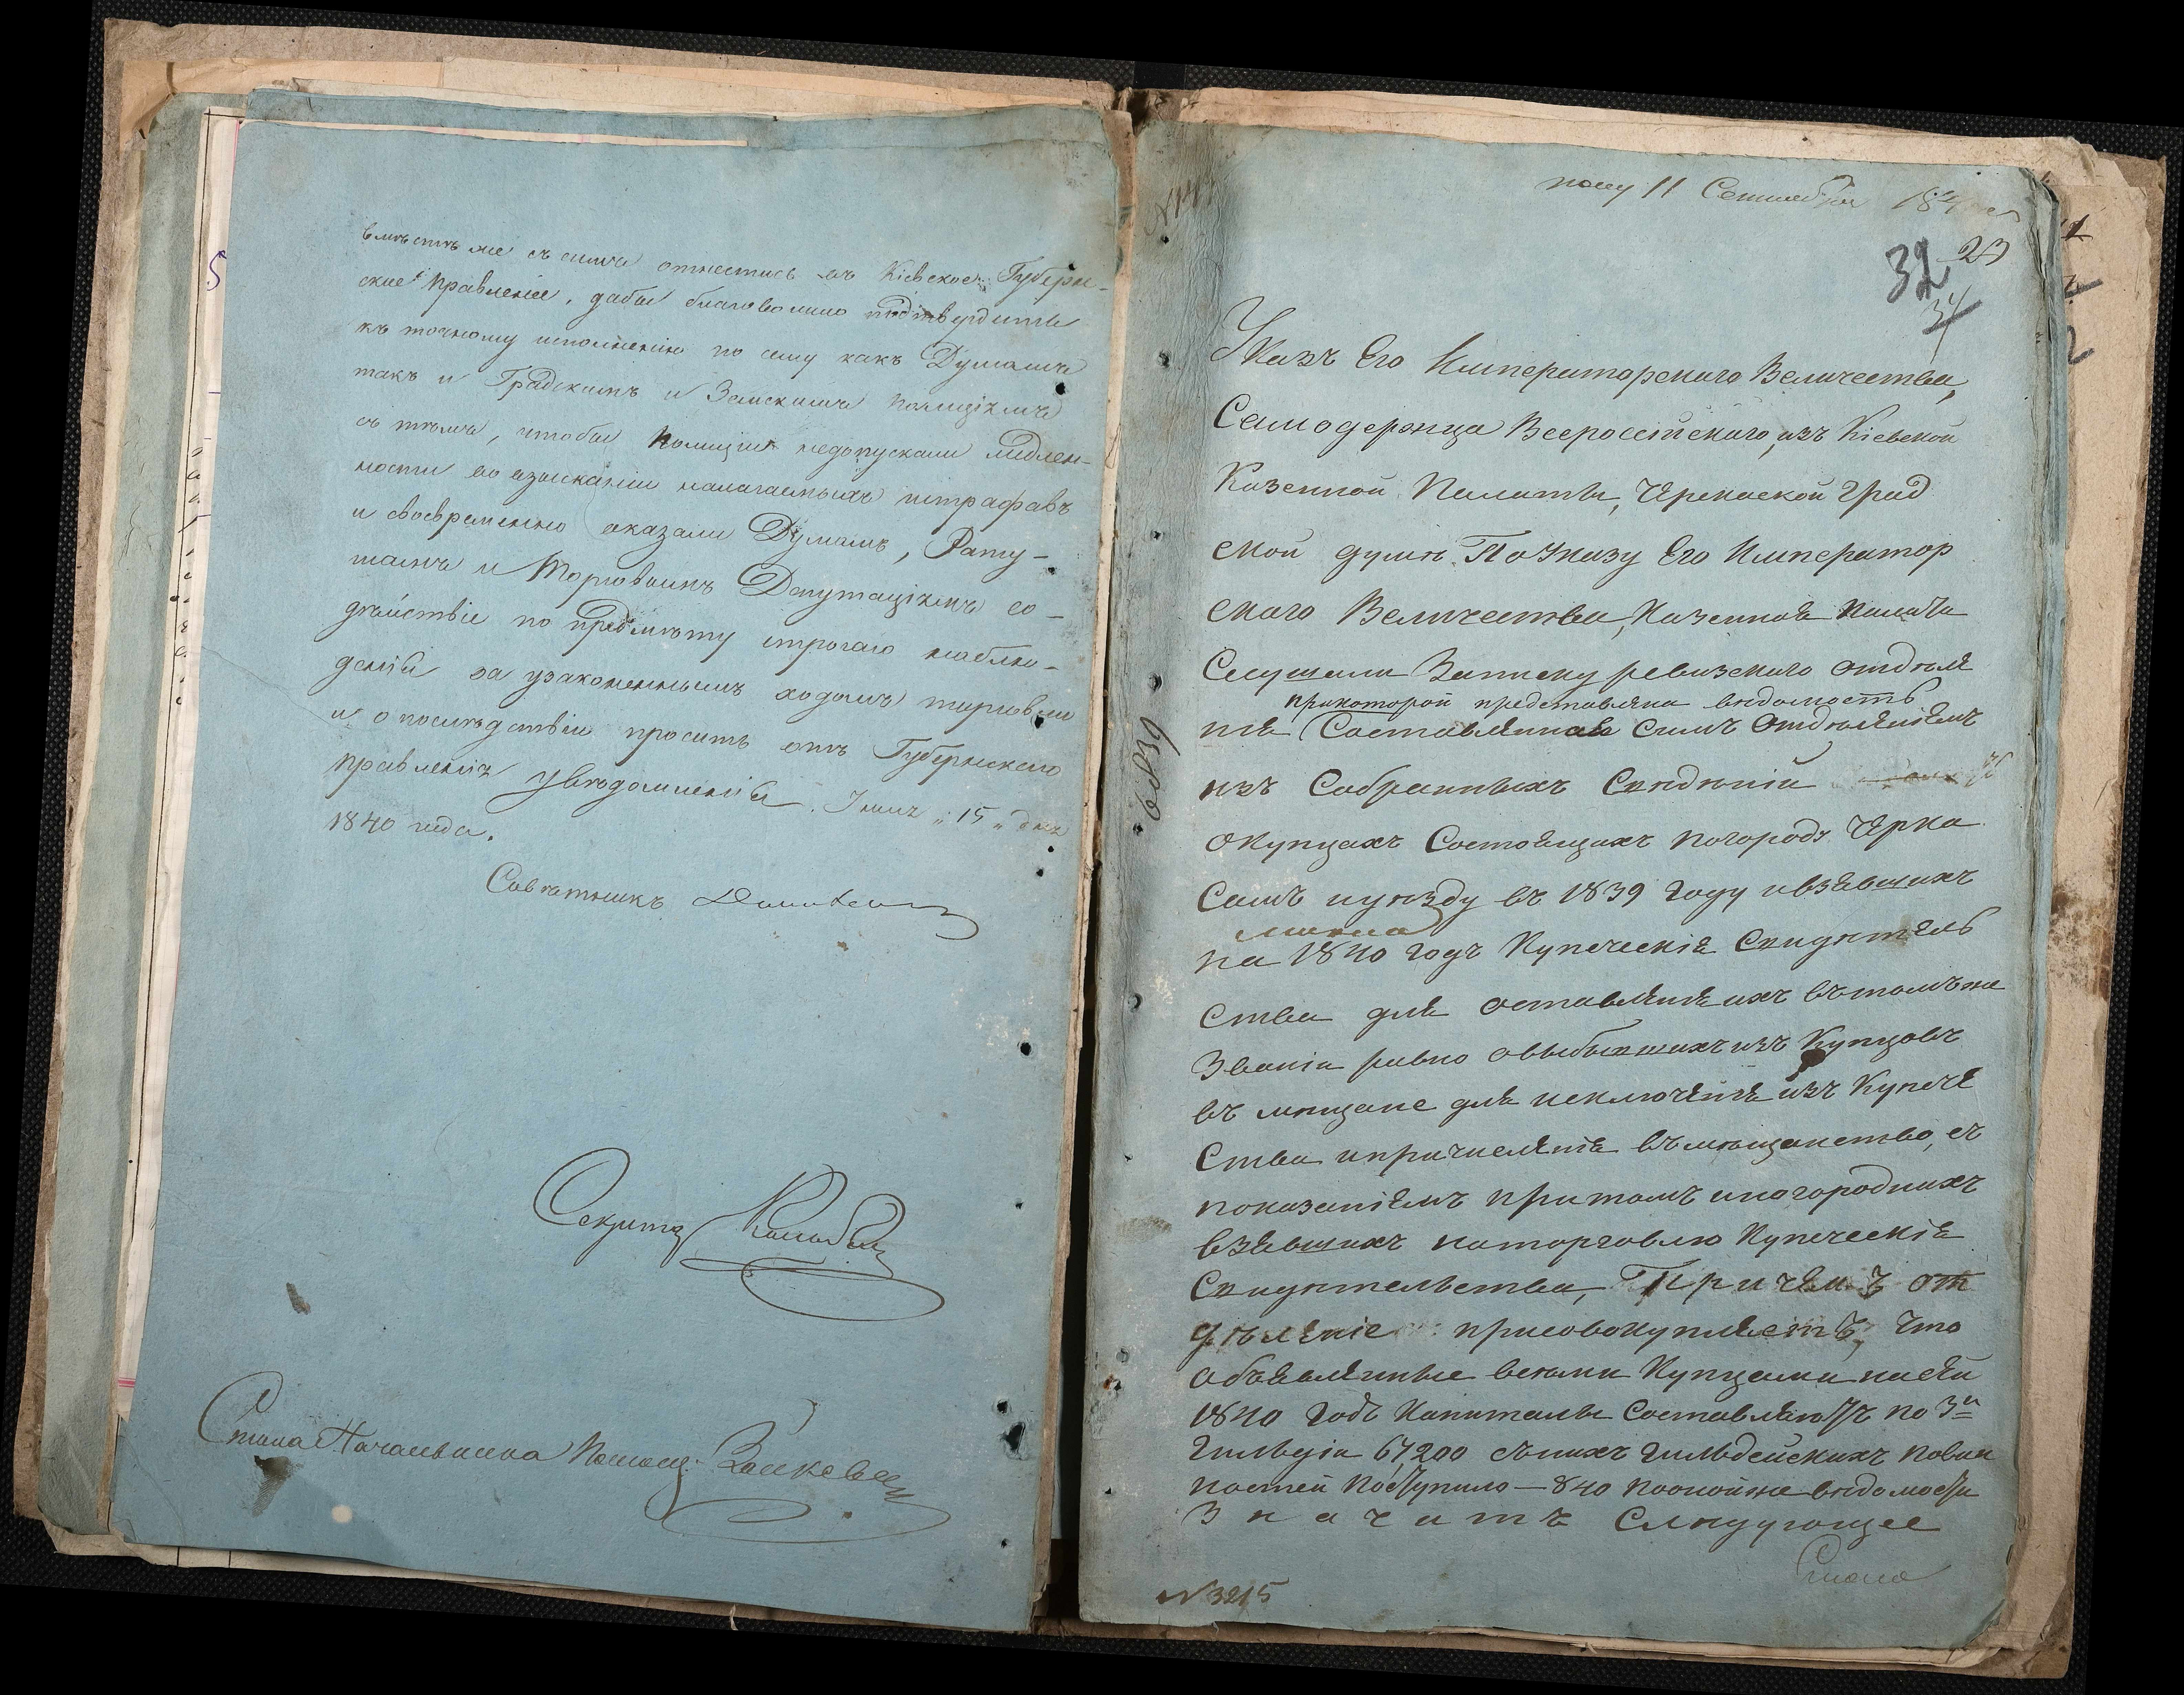 вмѣстѣ же съ симъ отнестись въ Кіевское Губерн-
ское Правленіе, дабы благоволило подтвердить
къ точному исполненію по сему какъ Думамъ
такъ и Градскимъ и Земскимъ Полиціямъ
съ тѣмъ, чтобы Полиціи недопускали медлен-
ности во взысканіи налагаемыхъ штрафовъ
и своевременно оказали Думамъ, Рату-
шамъ и Торговымъ Депутаціямъ со-
дѣйствіе по предмѣту строгаго наблю-
денія за узаконеннымъ ходомъ торговли
и о послѣдствіи просить отъ Губернскаго
Правленія увѣдомленія. Іюля „15„ дня
1840 года.
Совѣтникъ
Секрета
Стола Начальника Помощ:
5
11 Сентября
23
32
34
Указъ Его Императорскаго Величества,
Самодержца Всероссійскаго, изъ Кіевской
Казенной Палаты, Черкаской Град
ской думѣ. По Указу Его Император
скаго Величества, Казенная Палата
Слушали Записку ревизскаго отдѣле
прикоторой представлена вѣдомость
нія Составленная Симъ Отдѣленіемъ
изъ Собранныхъ Свѣдѣній
окупцахъ Состоящихъ погороду Черка
самъ иуѣзду въ 1839 году ивзявшихъ
на 1840 годъ Купеческія Свидѣтель
ства для оставленія ихъ вътомъже
Званіи равно овыбывшихъ изъ Купцовъ
въ мѣщане для исключенія изъ Купече
ства ипричисленія въмѣщанство, съ
показаніемъ притомъ иногородныхъ
взявшихъ наторговлю Купеческія
Свидѣтельства, Причемъ от
дѣленіе присовокупляетъ, что
объявленные всѣми Купцами насей
1840 годъ Капиталы Составляютъ по 3й
Гильдіи 67,200 сънихъ гильдейскихъ повин
ностей поступило — 840 поонойже вѣдомости
Значитъ Слѣдующее
6839
№3215